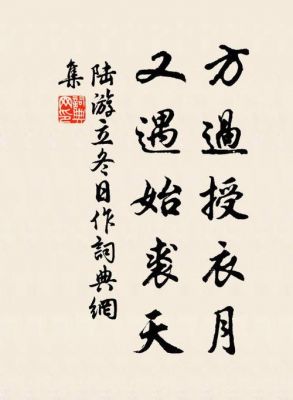 方過授衣月
又遇始裘天
陸游立冬日作詞典網
集